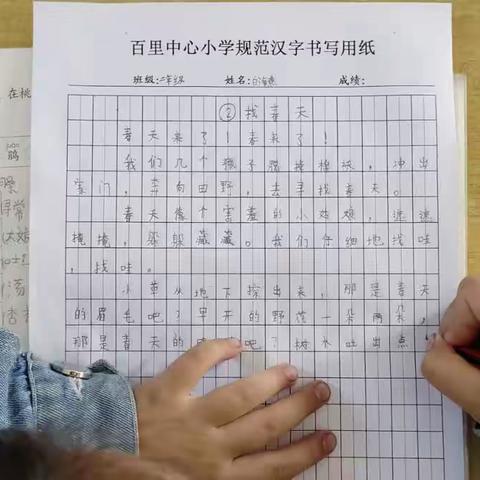 百里中心小学规范汉字书写用纸
班级:二年级 姓名: 成绩:
②找春天
春天来了!春天来了!
我们几个孩子脱掉棉袄,冲出
家门,奔向田野,去寻找春天。
春天像个害羞的小姑娘,遮遮
掩掩,躲躲藏藏。我们仔细地找哇
,找哇。
小草从地下探出来,那是春天
的眉毛吧?早开的野花一朵两朵,
那是春天的 吧?树木吐出点
在桃
得常